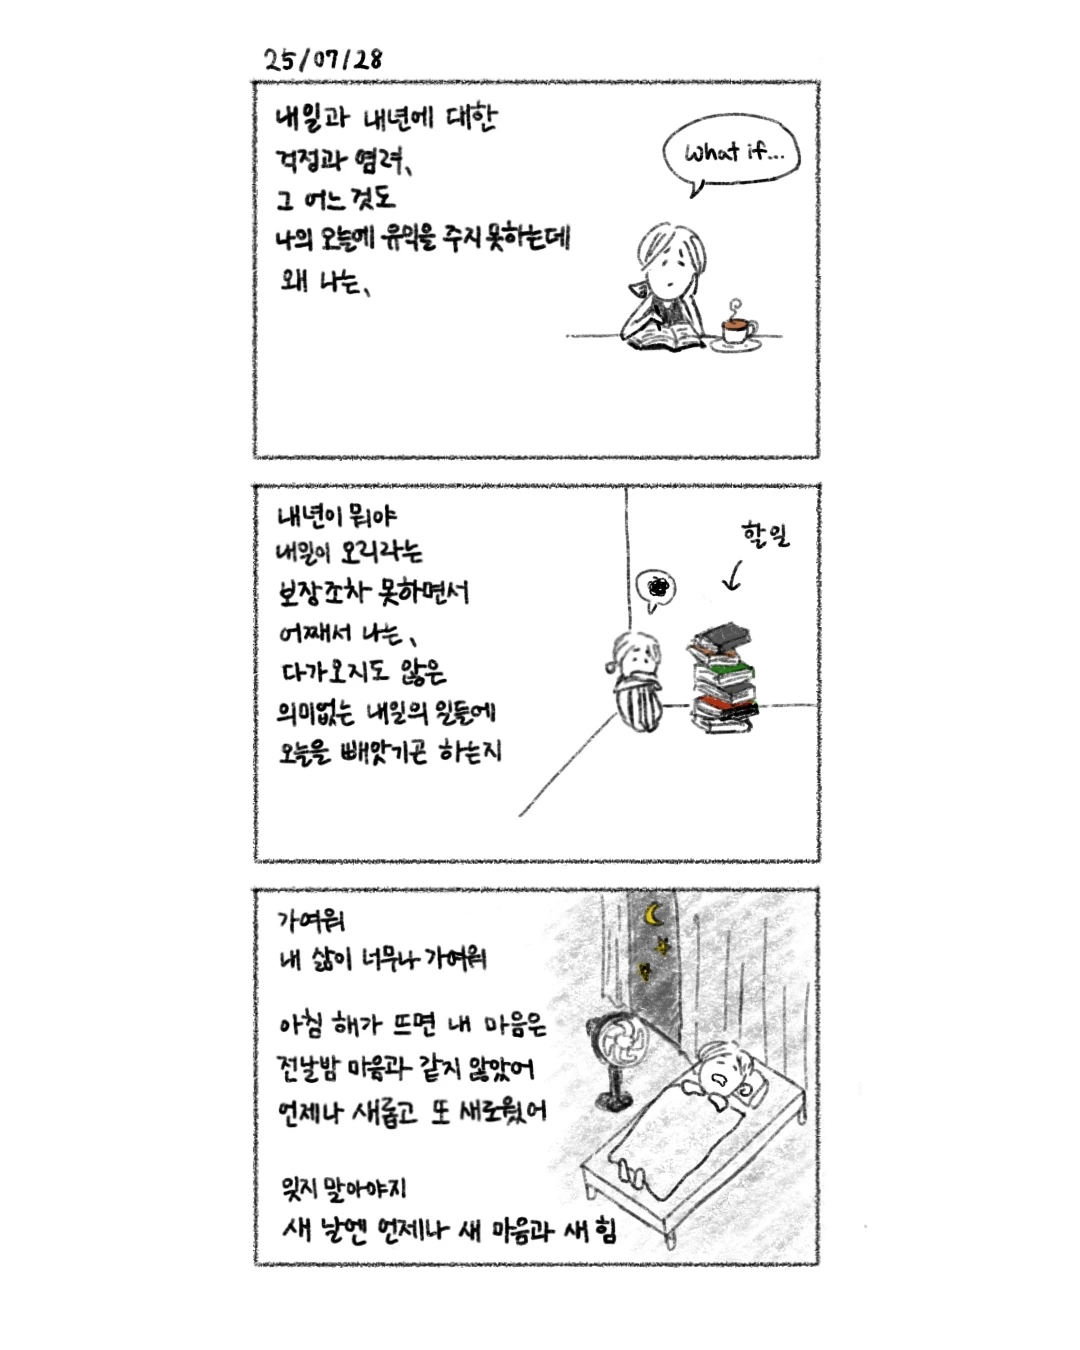 25/07/28
내일과 내년에 대한
걱정과 염려,
그 어느것도
나의 오늘에 유익을 주지못하는데
왜 나는,
what if...
내년이 뭐야
내일이 오리라는
보장조차 못하면서
어째서 나는,
다가오지도 않은
의미없는 내일의 일들에
오늘을 빼앗기곤 하는지
할일
가여워
내 삶이 너무나 가여워
아침 해가 뜨면 내 마음은
전날밤 마음과 같지 않았어
언제나 새롭고 또 새로웠어
잊지 말아야지
새 날엔 언제나 새 마음과 새 힘